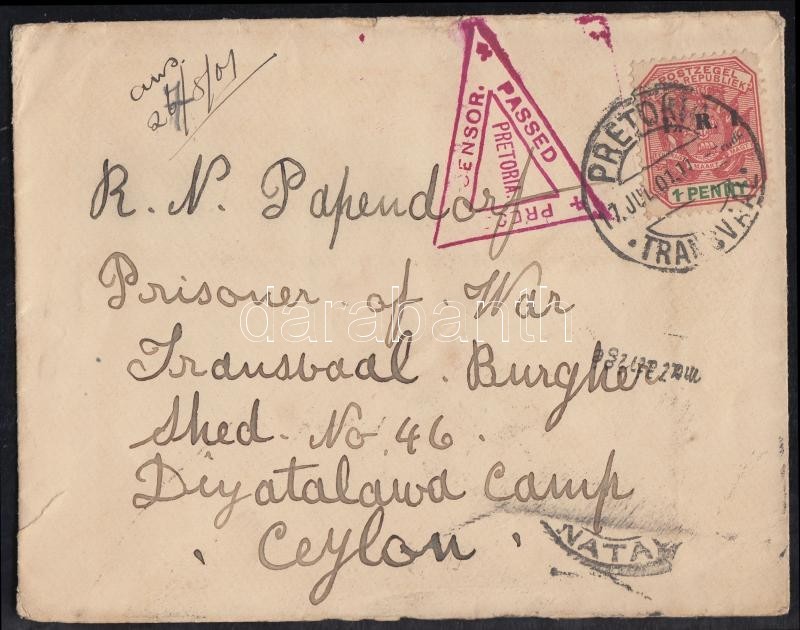 ans.
24/8/01
PASSED
PRESS CENSOR.
PRETORIA.
POSTZEGEL
REPUBLIEK
1 PENNY
PRETORIA
JUL 01
TRANSVAAL
R. N. Papendorf
Prisoner of War
Transvaal Burgher
Shed. No 46.
Diyatalawa Camp
Ceylon.
NATAL
darabanth